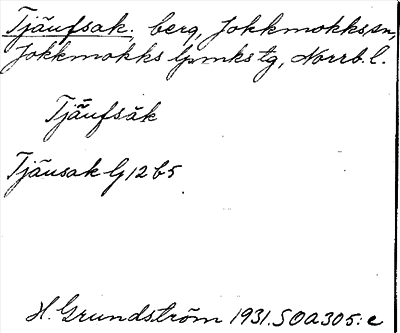 Tjäufsak. berg, Jokkmokks sn,
Jokkmokks lpmks tg, Norrb. l.
Tjäufsǎk
Tjäusak G 12 b5
H. Grundström 1931. SOA 305: c